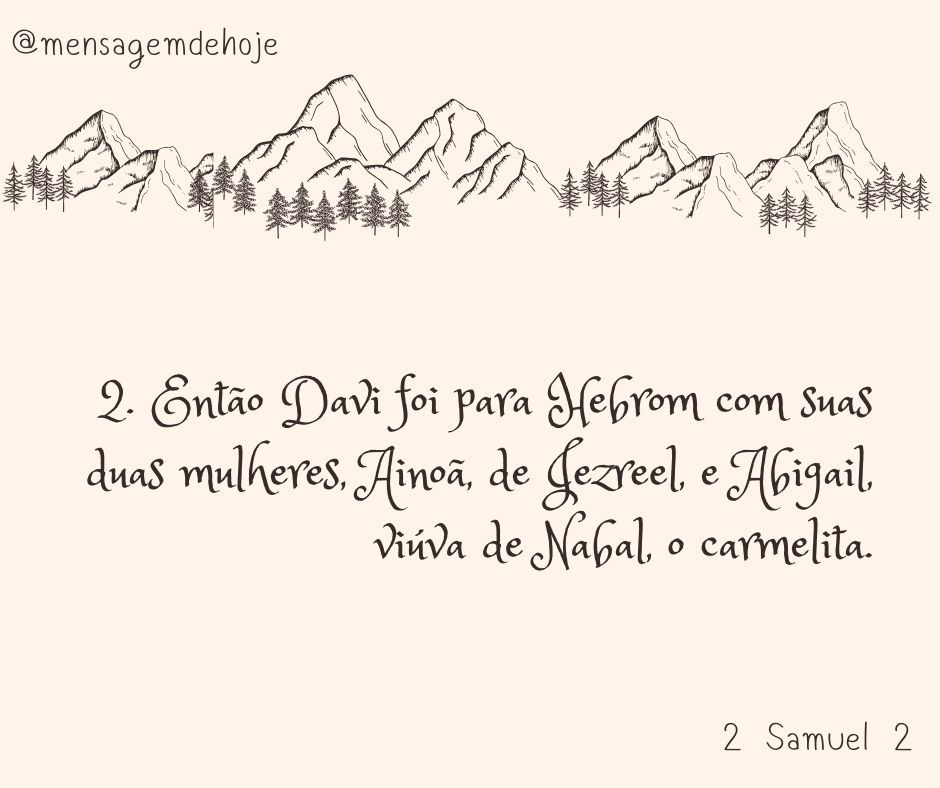 @mensagemdehoje
2. Então Davi foi para Hebrom com suas
duas mulheres, Ainoã, de Jezreel, e Abigail,
viúva de Nabal, o carmelita.
2 Samuel 2